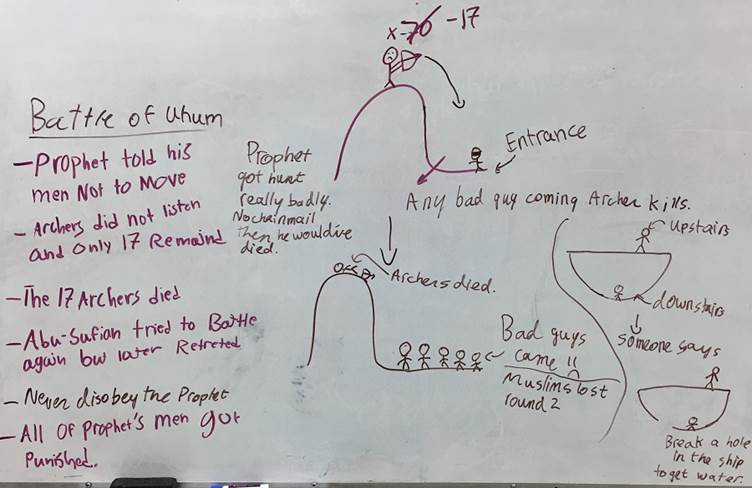 x-70 -17
Battle of Uhum
- Prophet told his
men Not to Move
- Archers did not listen
and Only 17 Remaind
- The 17 Archers died
- Abu-Sufian tried to Battle
again but later Retreted
- Never disobey the Prophet
- All Of Prophet's men got
Punished.
Prophet
got hurt
really badly.
No chainmail
then he would've
died.
Entrance
Any bad guy coming Archer kills.
Archers died.
Bad guys
came !!
Muslims lost
round 2
Upstairs
downstairs
someone says
Break a hole
in the ship
to get water.